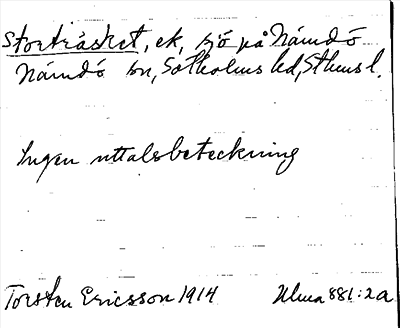 Storträsket, ek, sjö på Nämdö
Nämdö sn, Sotholms hd, Sthms l.
Ingen uttalsbeteckning
Torsten Ericsson 1914 Ulma 881:2a